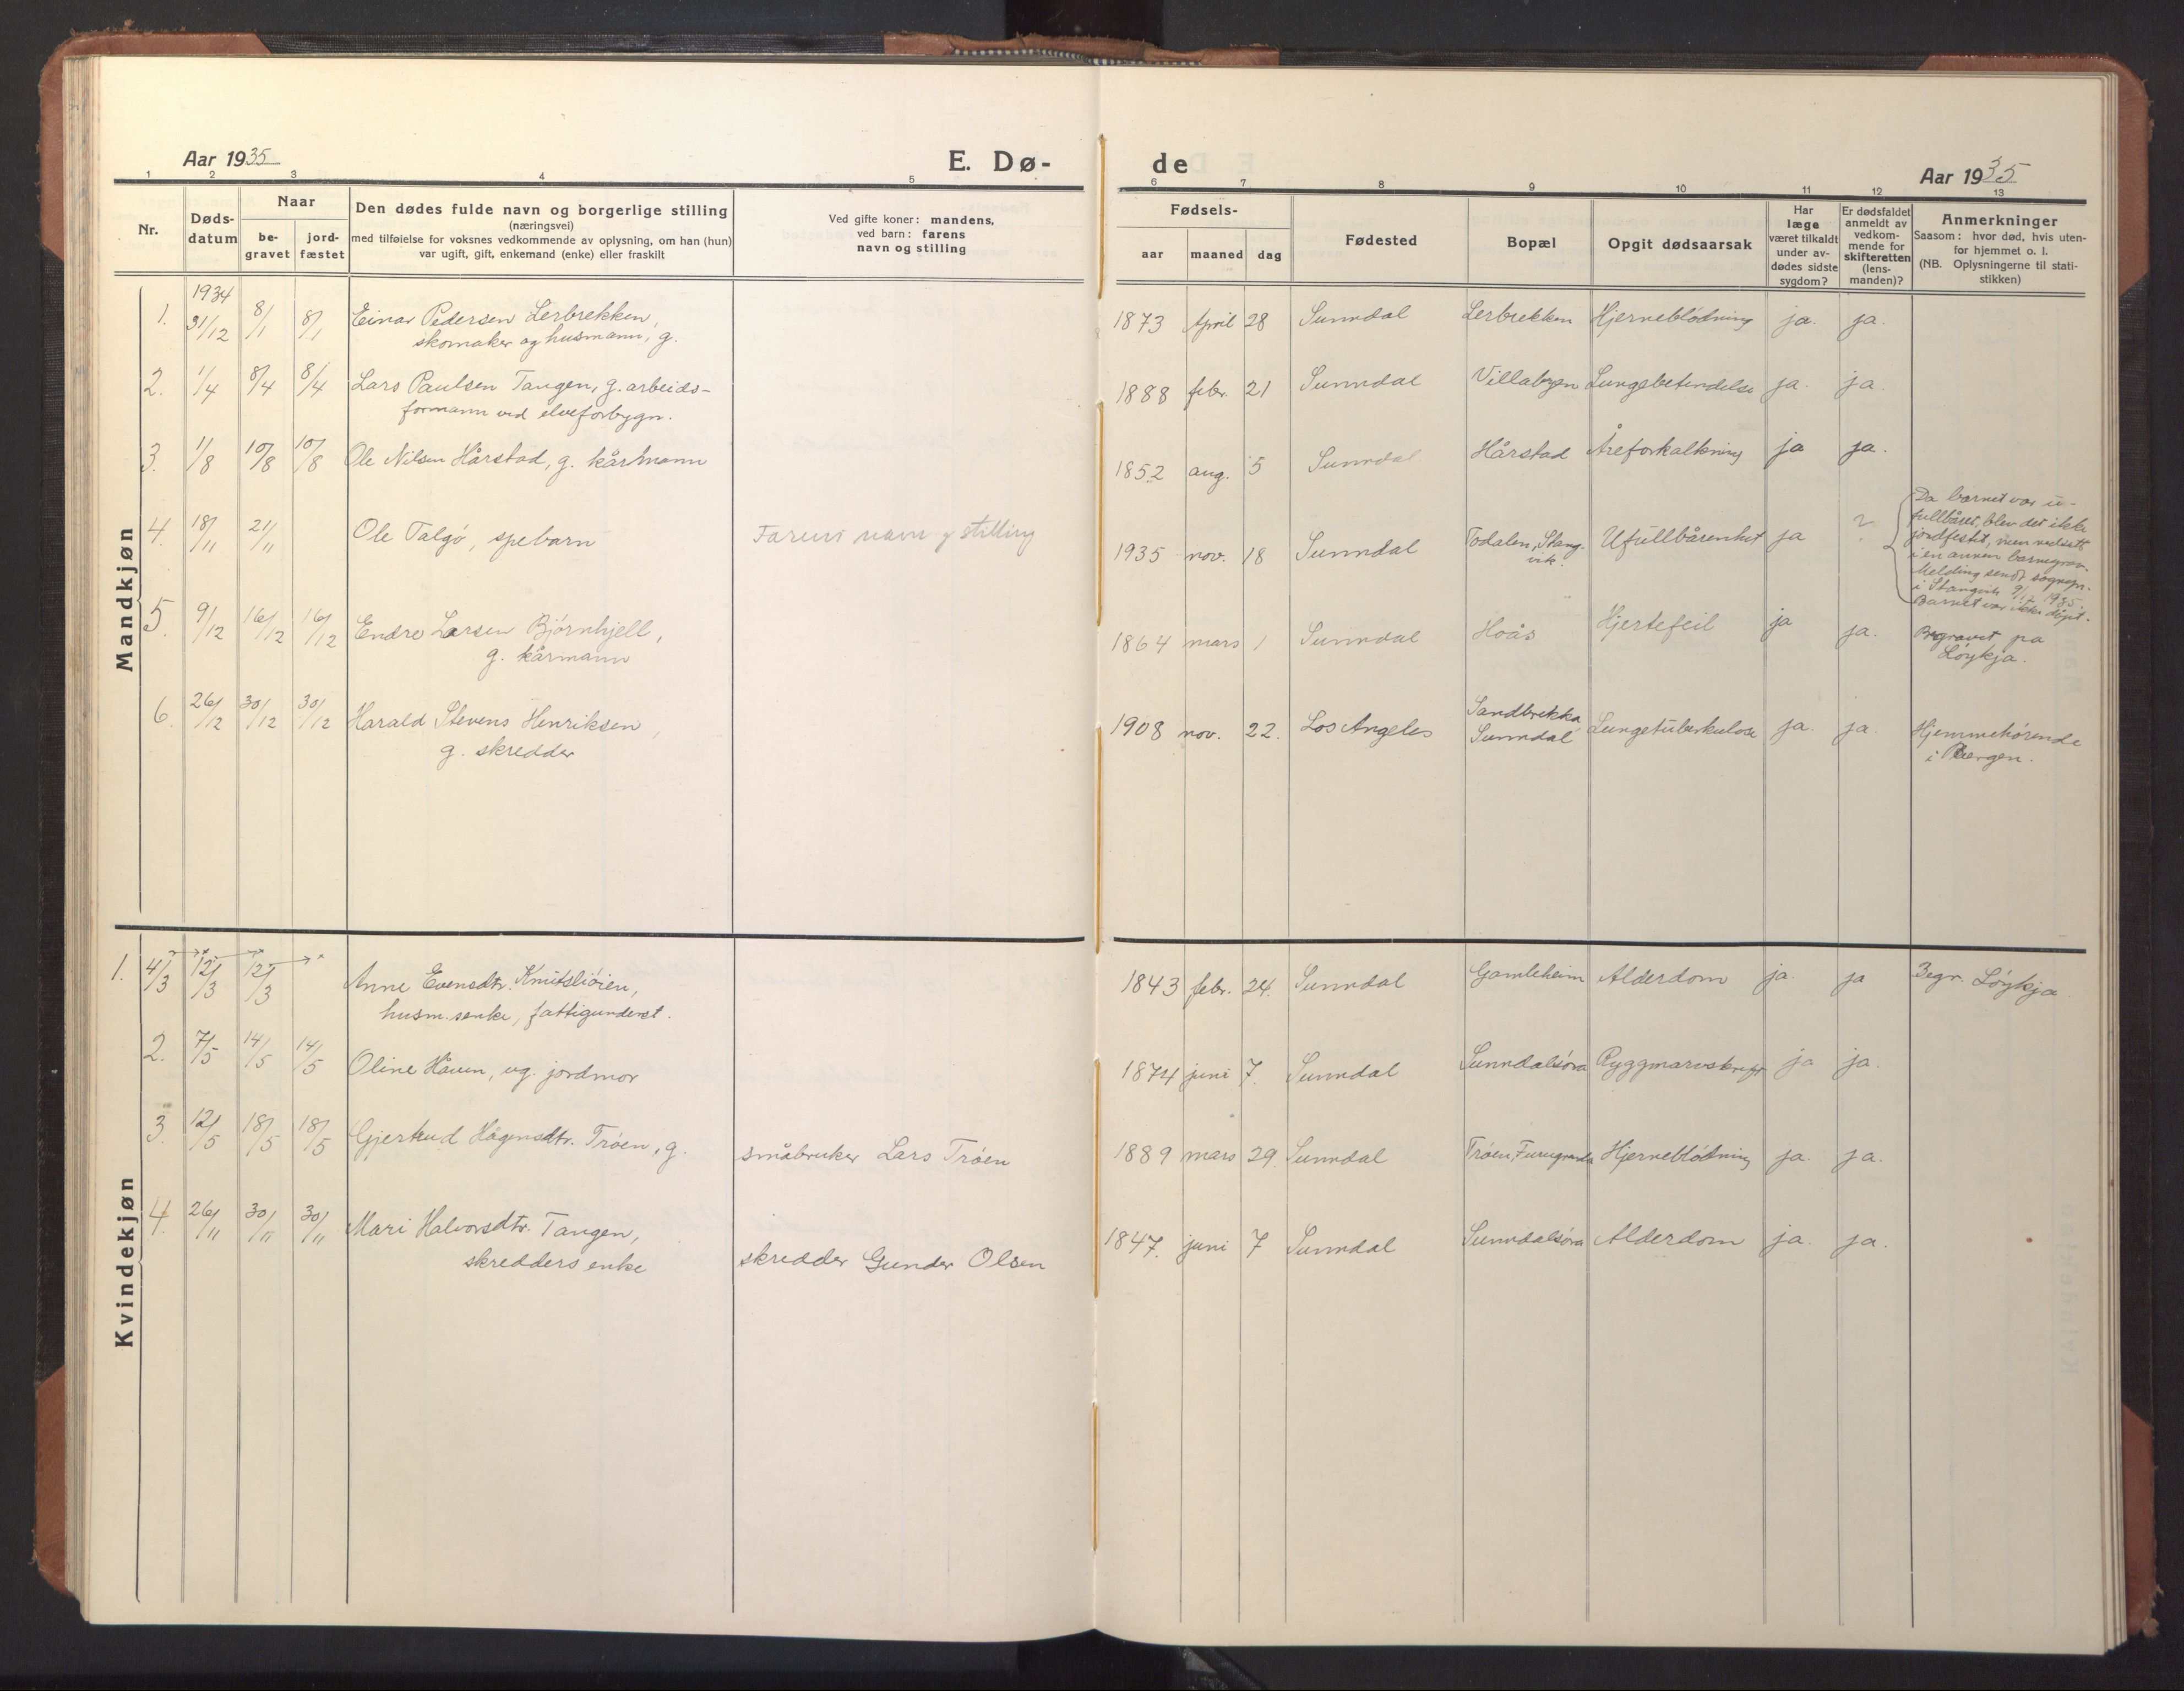 Aar 1935 E. Dø-
1 2 3 4 5
Nr.
Døds-
datum
Naar
be-
gravet
jord-
fæstet
Den dødes fulde navn og borgerlige stilling
(næringsvei)
med tilføielse for voksnes vedkommende av oplysning, om han (hun)
var ugift, gift, enkemand (enke) eller fraskilt
Ved gifte koner: mandens,
ved barn: farens
navn og stilling
Mandkjøn
1934
1. 31/12 8/1 8/1 Einar Pedersen Lerbrekken,
skomaker og husmann, g.
2. 1/4 8/4 8/4 Lars Paulsen Tangen, g. arbeids-
formann ved elveforbygn.
3. 1/8 10/8 10/8 Ole Nilsen Hårstad, g. kårmann
4. 18/11 21/11 Ole Talgø, spebarn Farens navn og stilling
5. 9/12 16/12 16/12 Endre Larsen Bjørnhjell,
g. kårmann
6. 26/12 30/12 30/12 Harald Stevens Henriksen,
g. skredder
Kvindekjøn
1. 4/3 12/3 12/3 Anne Evensdtr. Knutsliøien,
husm.senke, fattigunderst.
2. 7/5 14/5 14/5 Oline Haven, ug. jordmor
3. 12/5 18/5 18/5 Gjertrud Hågensdtr. Trøen, g. småbruker Lars Trøen
4. 26/11 30/11 30/11 Mari Halvorsdtr. Tangen,
skredders enke skredder Gunder Olsen
de Aar 1935
6 7 8 9 10 11 12 13
Fødsels-
aar maaned dag
Fødested
Bopæl
Opgit dødsaarsak
Har
læge
været tilkaldt
under av-
dødes sidste
sygdom?
Er dødsfaldet
anmeldt av
vedkom-
mende for
skifteretten
(lens-
manden)?
Anmerkninger
Saasom: hvor død, hvis uten-
for hjemmet o. l.
(NB. Oplysningerne til stati-
stikken)
1873 April 28 Sunndal Lerbrekken Hjerneblødning ja. ja.
1888 febr. 21 Sunndal Villabyen Lungebetendelse ja. ja.
1852 aug. 5 Sunndal Hårstad Åreforkalkning ja ja.
1935 nov. 18 Sunndal Todalen, Stang-
vik. Ufullbårenhet ja ?
Da barnet var u-
fullbåret, blev det ikke
jordfestet, men nedsatt
i en annen barnegrav.
Melding sendt sognepr.
i Stangvik 9/12 1935.
Barnet var ikke døpt.
1864 mars 1 Sunndal Hoås Hjertefeil ja ja. Begravet på
Løykja.
1908 nov. 22. Los Angeles Sandbrekka
Sunndal Lungetuberkulose ja. ja. Hjemmehørende
i Bergen.
1843 febr. 24. Sunndal Gamleheim Alderdom ja. ja Begr. Løykja
1874 juni 7. Sunndal Sunndalsøra Ryggmarvskreft ja ja.
1889 mars 29 Sunndal Trøen Furugrenda Hjerneblødning ja. ja.
1847. juni 7 Sunndal Sunndalsøra Alderdom ja. ja.